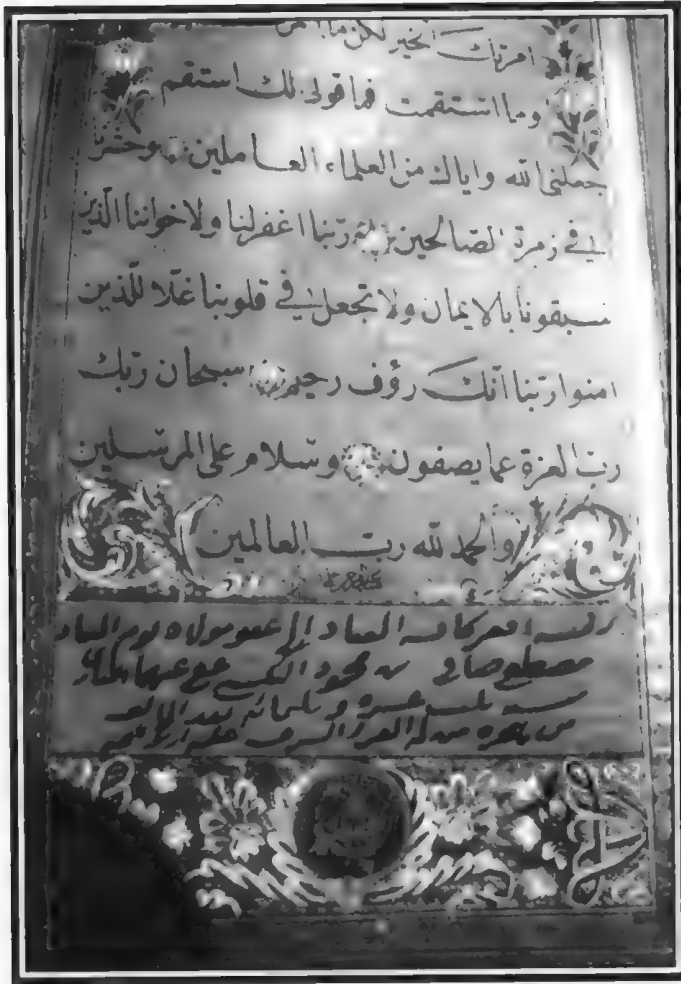 امرتك الخير لكن ما
وما استقمت فما قولى لك استقم
جعلنى الله واياك من العلماء العاملين وحشر
نى فى زمرة الصالحين ربنا اغفرلنا ولاخواننا الّذين
سبقونا بلايمان ولا تجعل فى قلوبنا غلّا للّذين
امنوا ربّنا انّك رؤف رحيم سبحان ربّك
ربّ العزة عما يصفون وسلام على المرسلين
والحمد لله ربّ العالمين
العباد الى عفو مولاه يوم
مصطفى صافى بن محمود
سنة ثلث عشره وثلمائه بعد الالف
من هجرة من له العز والشرف